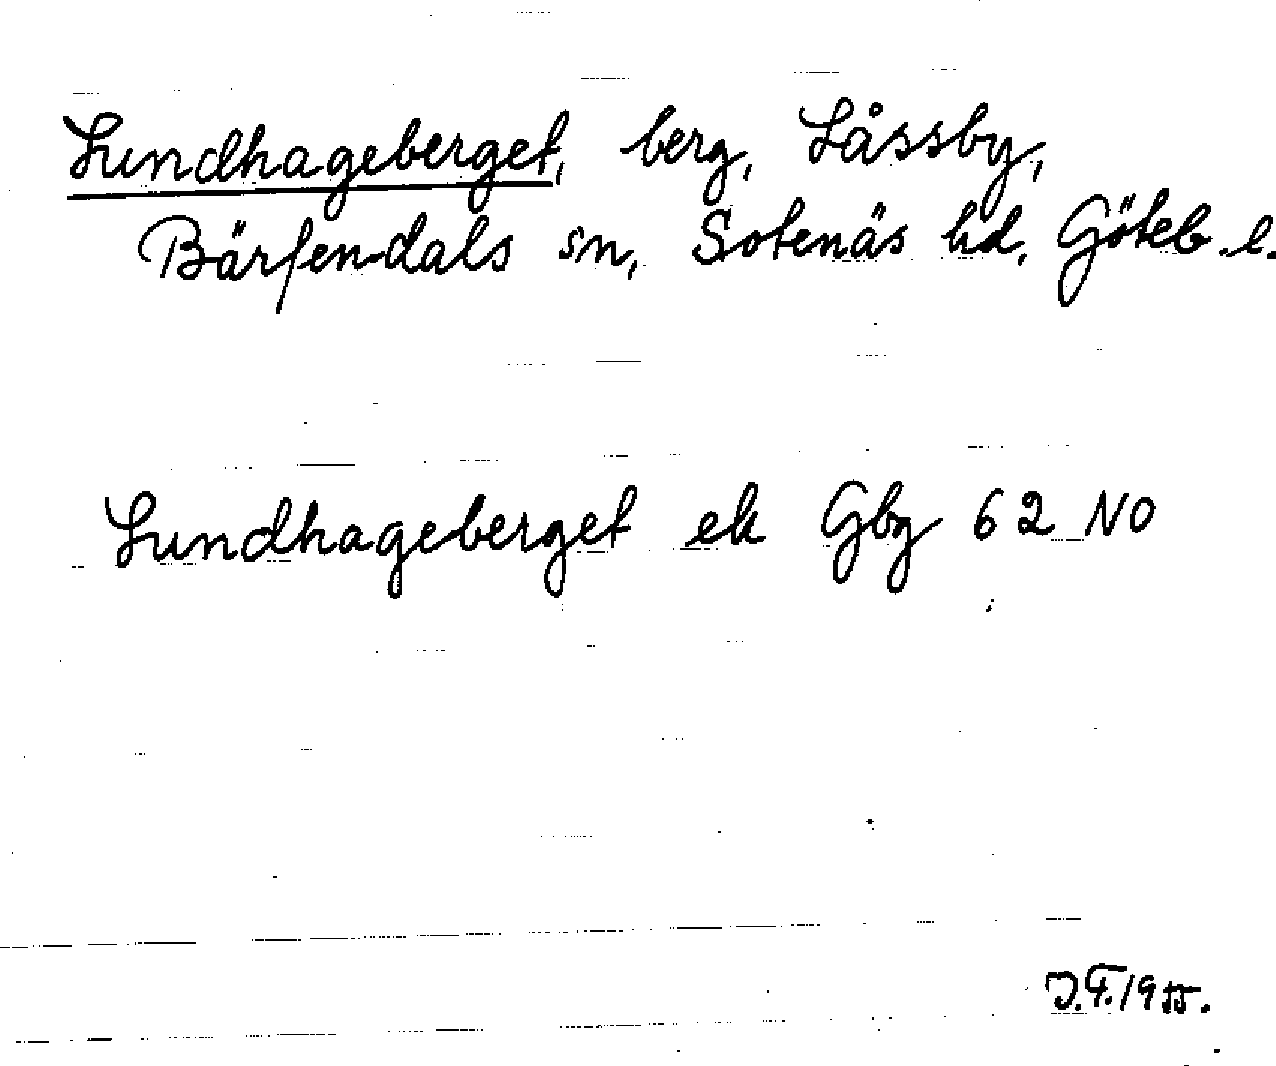 Lundhageberget, berg, Låssby,
Bärfendals sn, Sotenäs hd, Göteb. l.
Lundhageberget ek Gbg 62 NO
J.F. 1955.